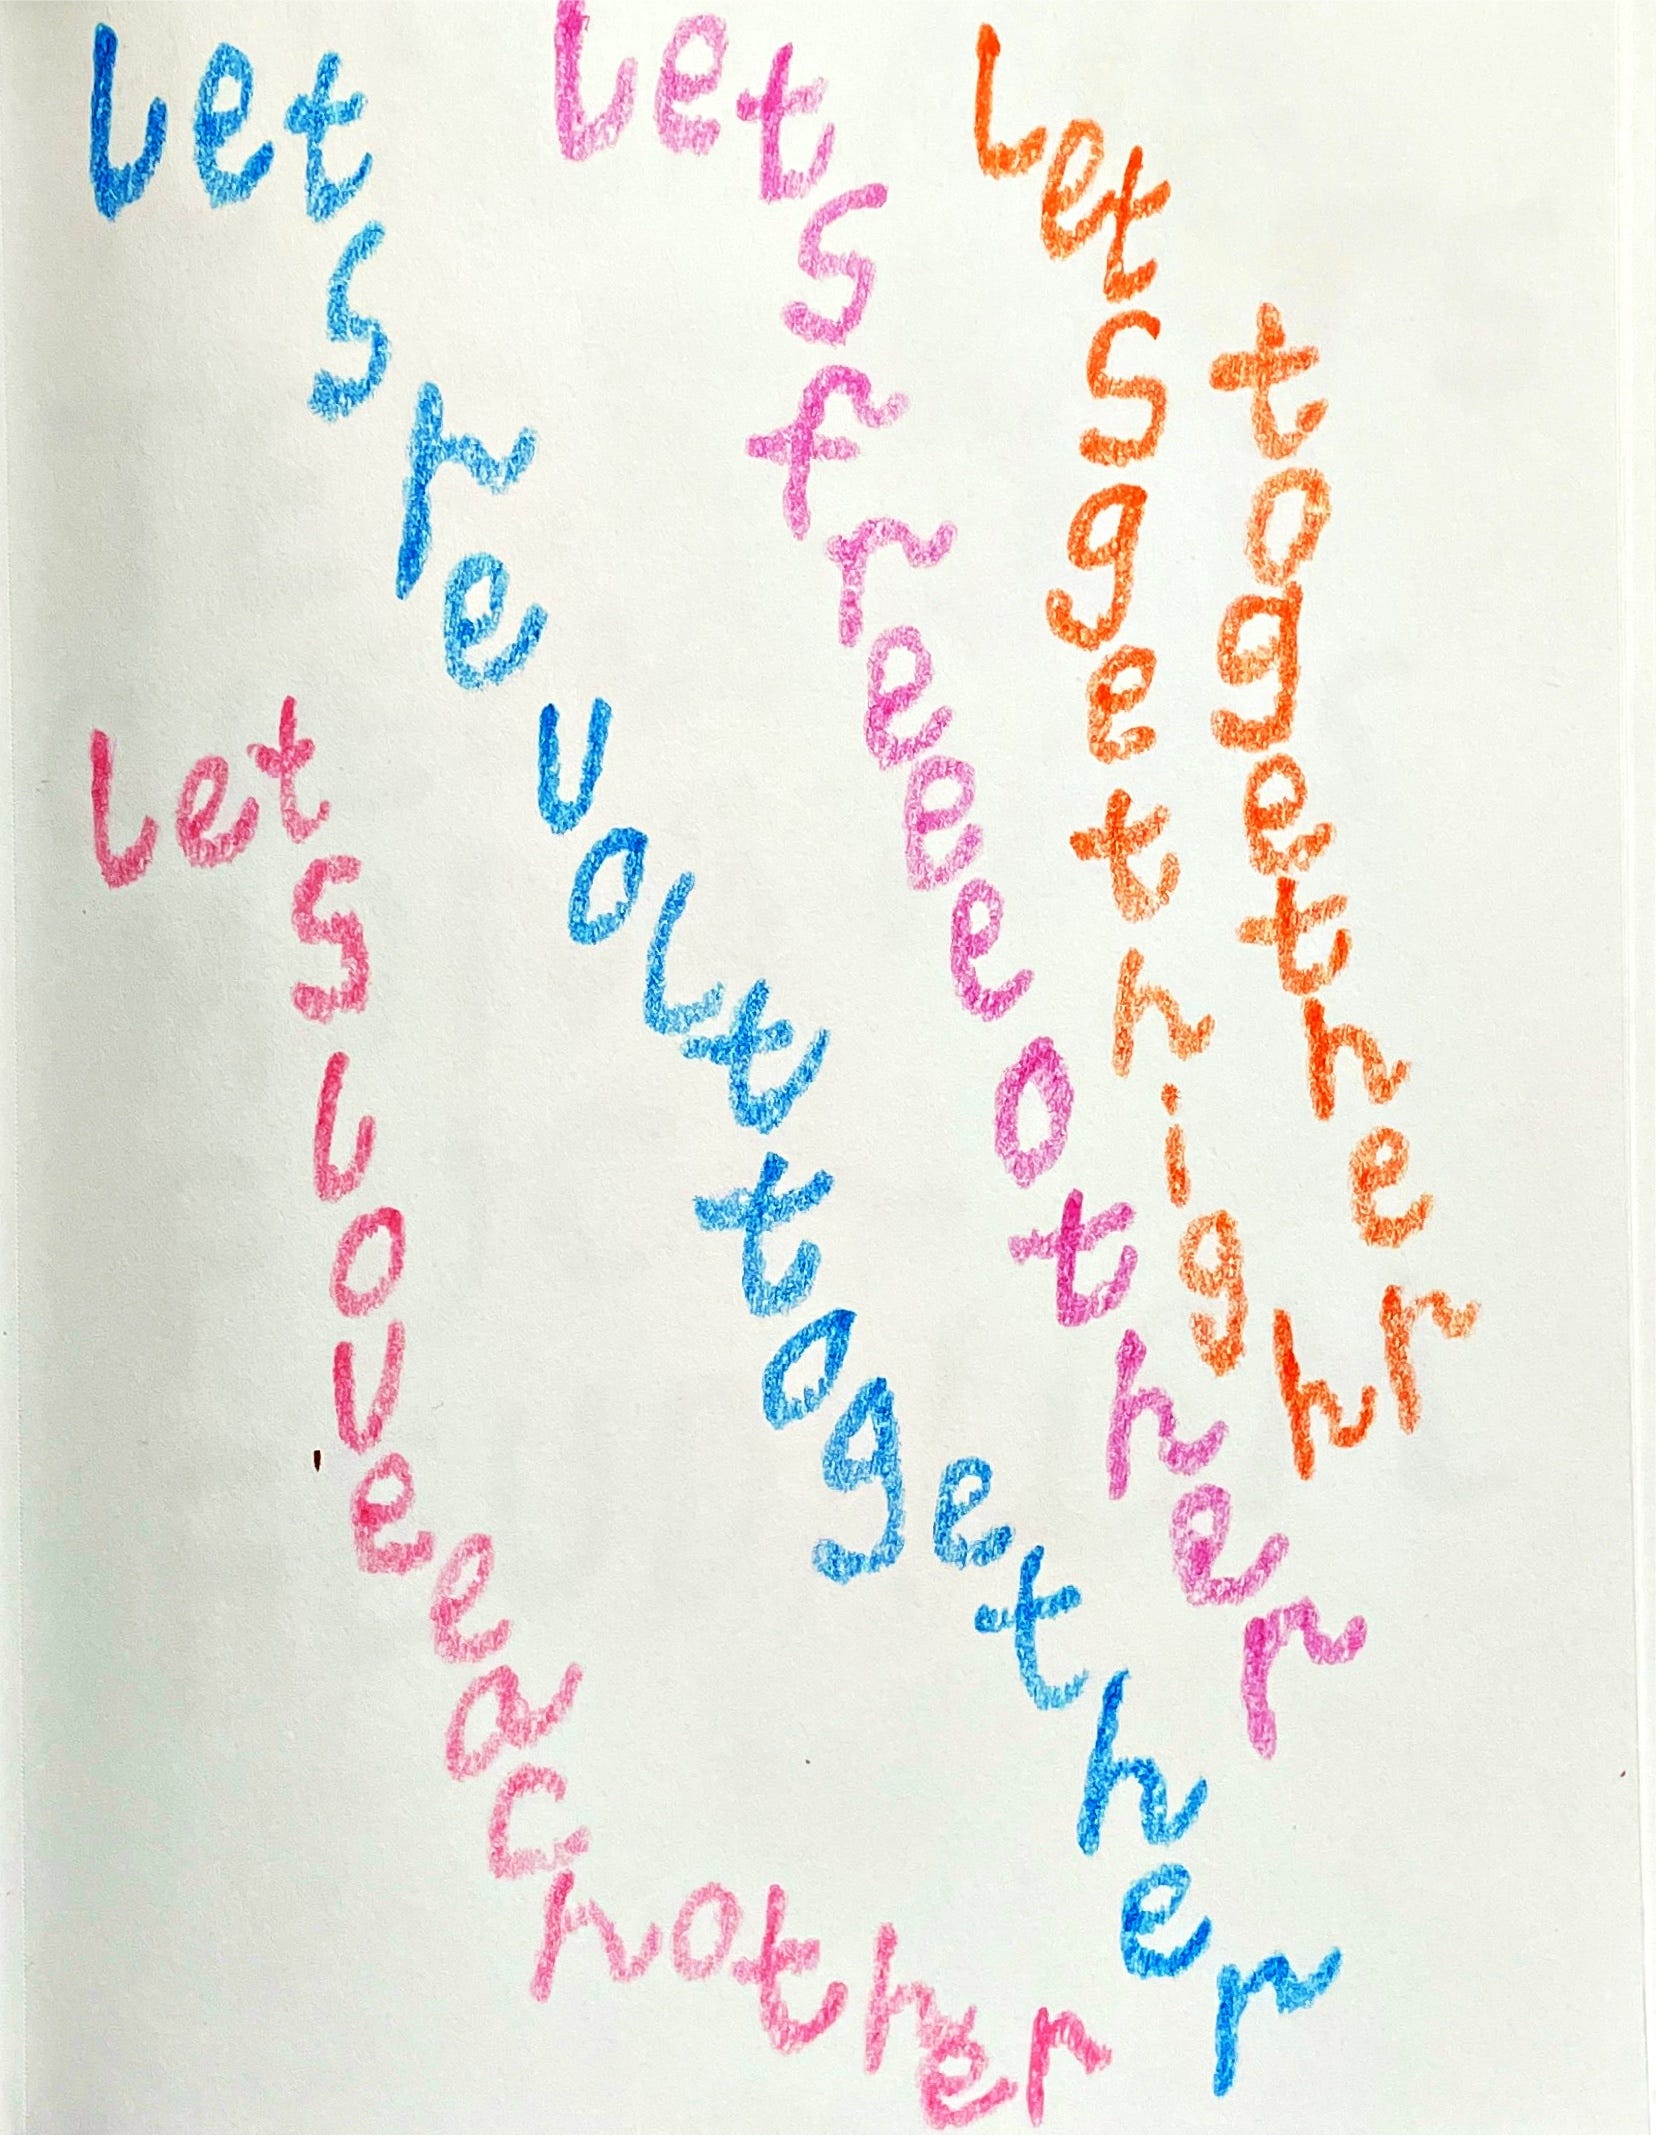 Lets revolt together
Lets freee other
Lets get high
together
Lets love each other